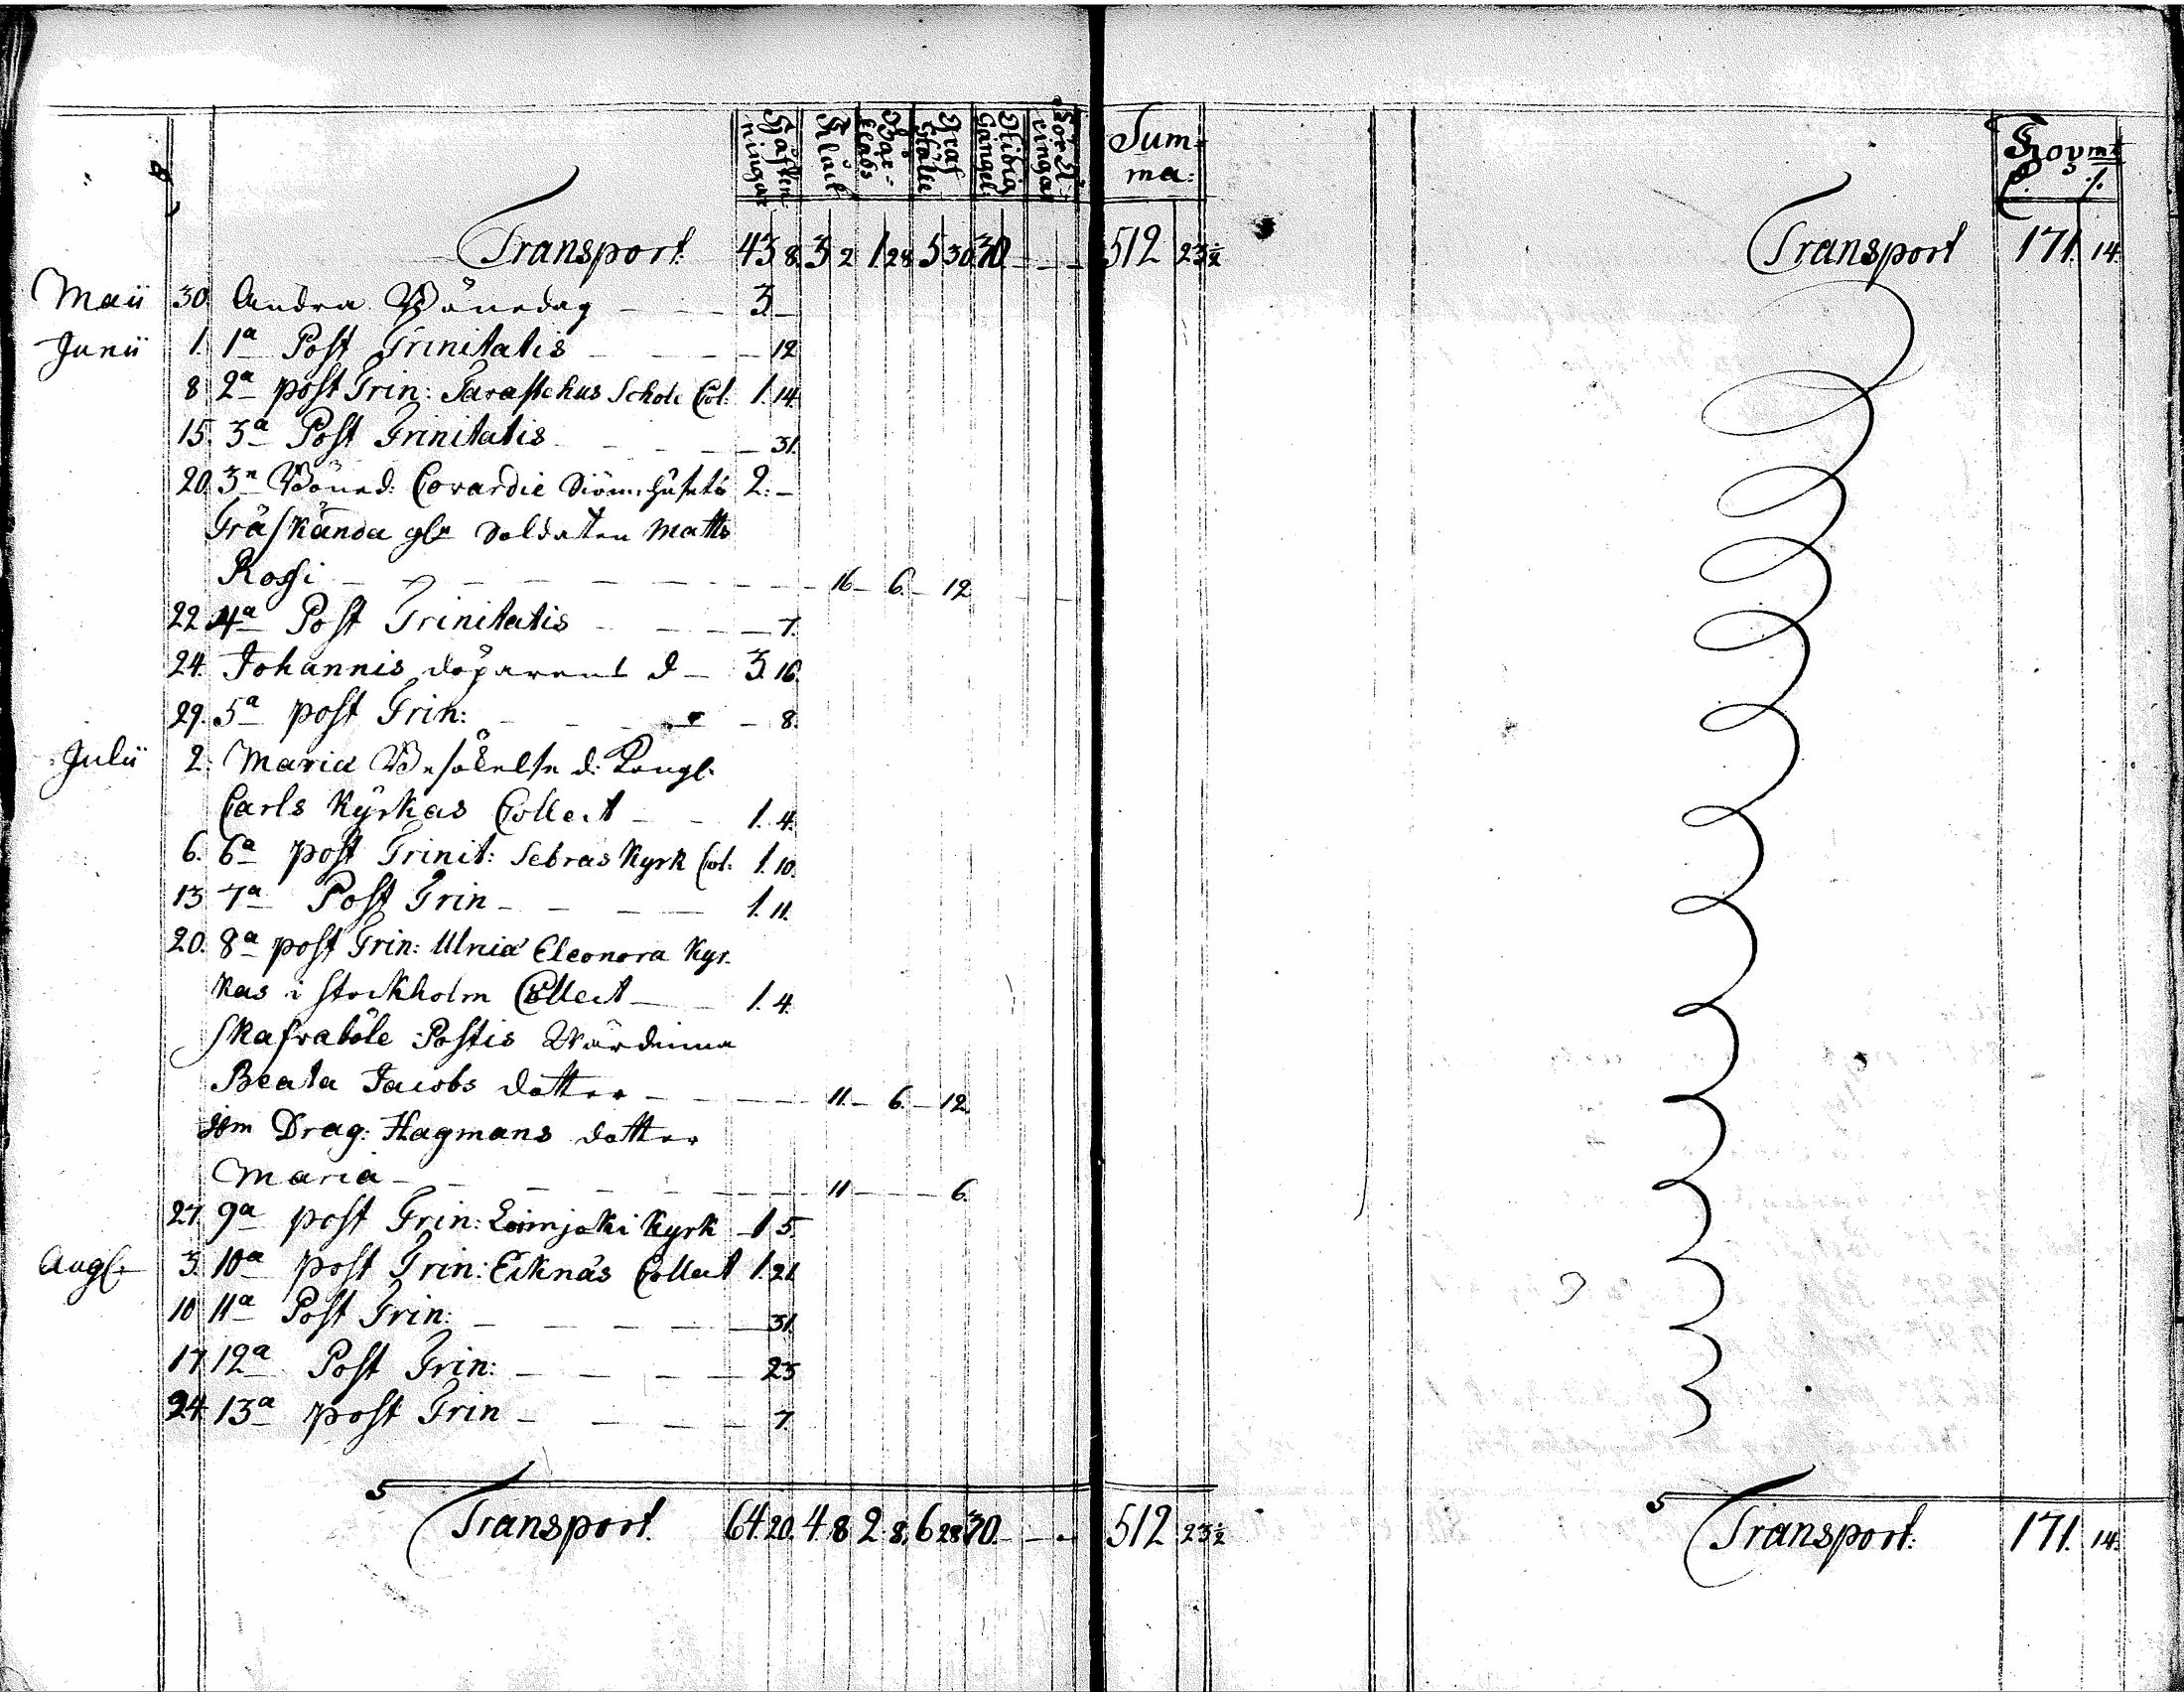 Håfnin-
ningar
Klåck
Bår-
kläds
Graf
Ställe
Öfrig
Gångel:
Sum-
ma:
Kopmt
Transport 43 8. 3 2 1. 28 5 30 30. - - - 512 23½ Transport 171. 14.
Maii 30. Andra Bönedag - - - 3. -
Junii 1. 1a Post Trinitatis - - - - 12
8 2a post Trin: Tavastehus Schole Col: 1. 14.
15. 3a Post Trinitatis - - - - 31.
20. 3n Böned: Covardie Siöm: husets 2. -
Gräskända glr Soldaten Matts
Rossi - - - - - - 16 - 6. - 12
22 4a Post Trinitatis - - - - 7.
24. Johannis döparens d - 3. 16.
29. 5a post Trin: - - - - 8.
Julii 2. Mariæ Besökelse d. Kongl.
Carls Kyrkas Collect - - 1. 4.
6. 6a post Trinit: Sebras Kyrk Col: 1. 10.
13 7a Post Trin - - - - 1. 11.
20. 8a post Trin: Ulrica Eleonora Kyr-
kas i Stockholm Collect - 1. 4.
Skafraböle Postis Wärdinna
Beata Jacobs dotter - - - - 11. - 6. - 12.
Drag: Hagmans dotter
Maria - - - - - - - 11 - - - 6.
27. 9a post Trin: Loimjoki Kyrk - 1. 5.
Augl: 3. 10a post Trin: Eknäs Collect 1. 21.
10 11a Post Trin: - - - - - 31.
17. 12a Post Trin: - - - - 23
24. 13a post Trin - - - - 7.
Transport. 64. 20. 4. 8 2. 8. 6 28 30. - - - 512 23½ Transport: 171. 14.